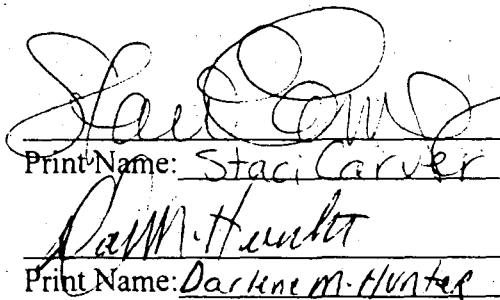 Staci Carver
Print Name: Staci Carver
Dar M. Hunter
Print Name: Darlene M. Hunter